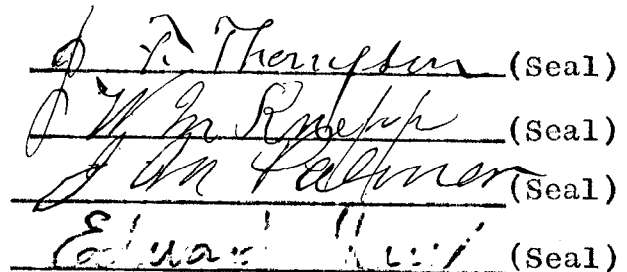 J. T. Thompson (Seal)
W M Knepp (Seal)
J Wm Palmer (Seal)
Edward (Seal)